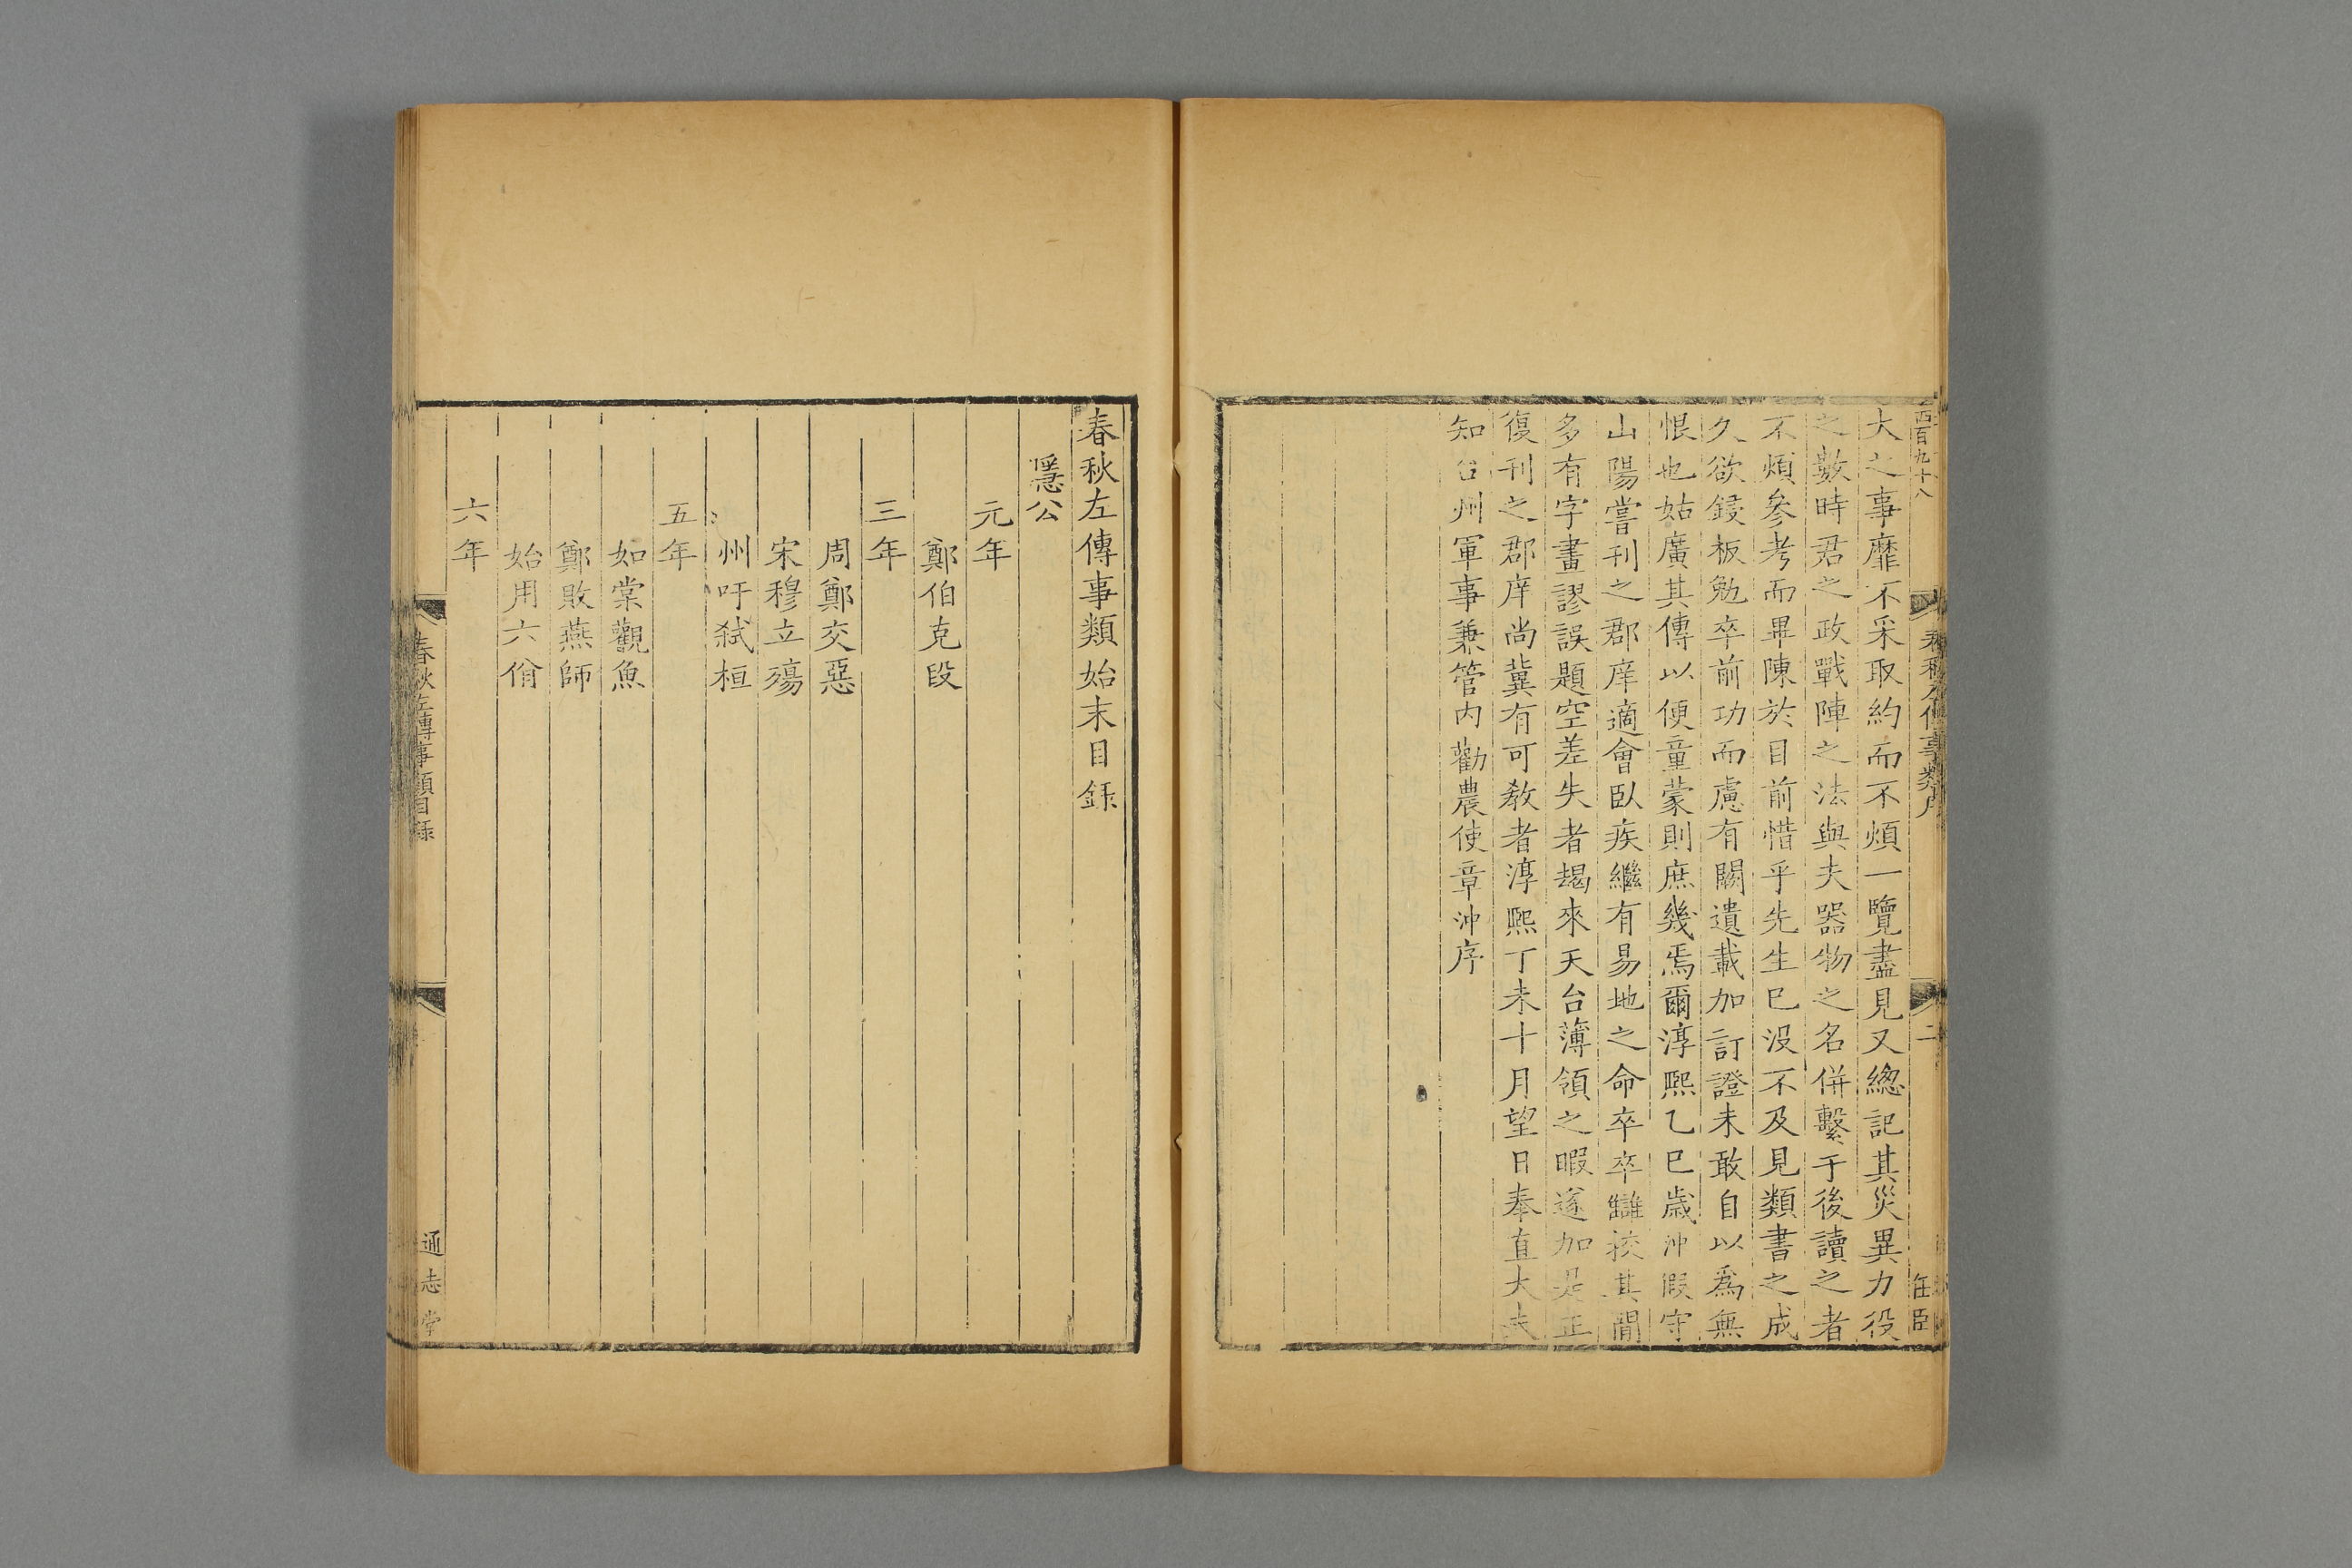 四百九十八
大之事靡不采取約而不煩一覽盡見又總記其災異力役
之數時君之政戰陣之法與夫器物之名併繫于後讀之者
不煩參考而畢陳於目前惜乎先生已沒不及見類書之成
久欲鋟板勉卒前功而慮有闕遺載加訂證未敢自以為無
恨也姑廣其傳以便童蒙則庶幾焉爾淳熙乙巳歲沖假守
山陽嘗刊之郡庠適會臥疾繼有易地之命卒卒讎挍其間
多有字畫謬誤題空差失者朅來天台薄領之暇遂加是正
復刊之郡庠尚冀有可教者淳熙丁未十月望日奉直大夫
知台州軍事兼管內勸農使章沖序
春秋左傳事類序
二
任臣
春秋左傳事類始末目錄
隱公
元年
鄭伯克段
三年
周鄭交惡
宋穆立殤
州吁弑桓
五年
如棠觀魚
鄭敗燕師
始用六佾
六年
春秋左傳事類目錄
通志堂